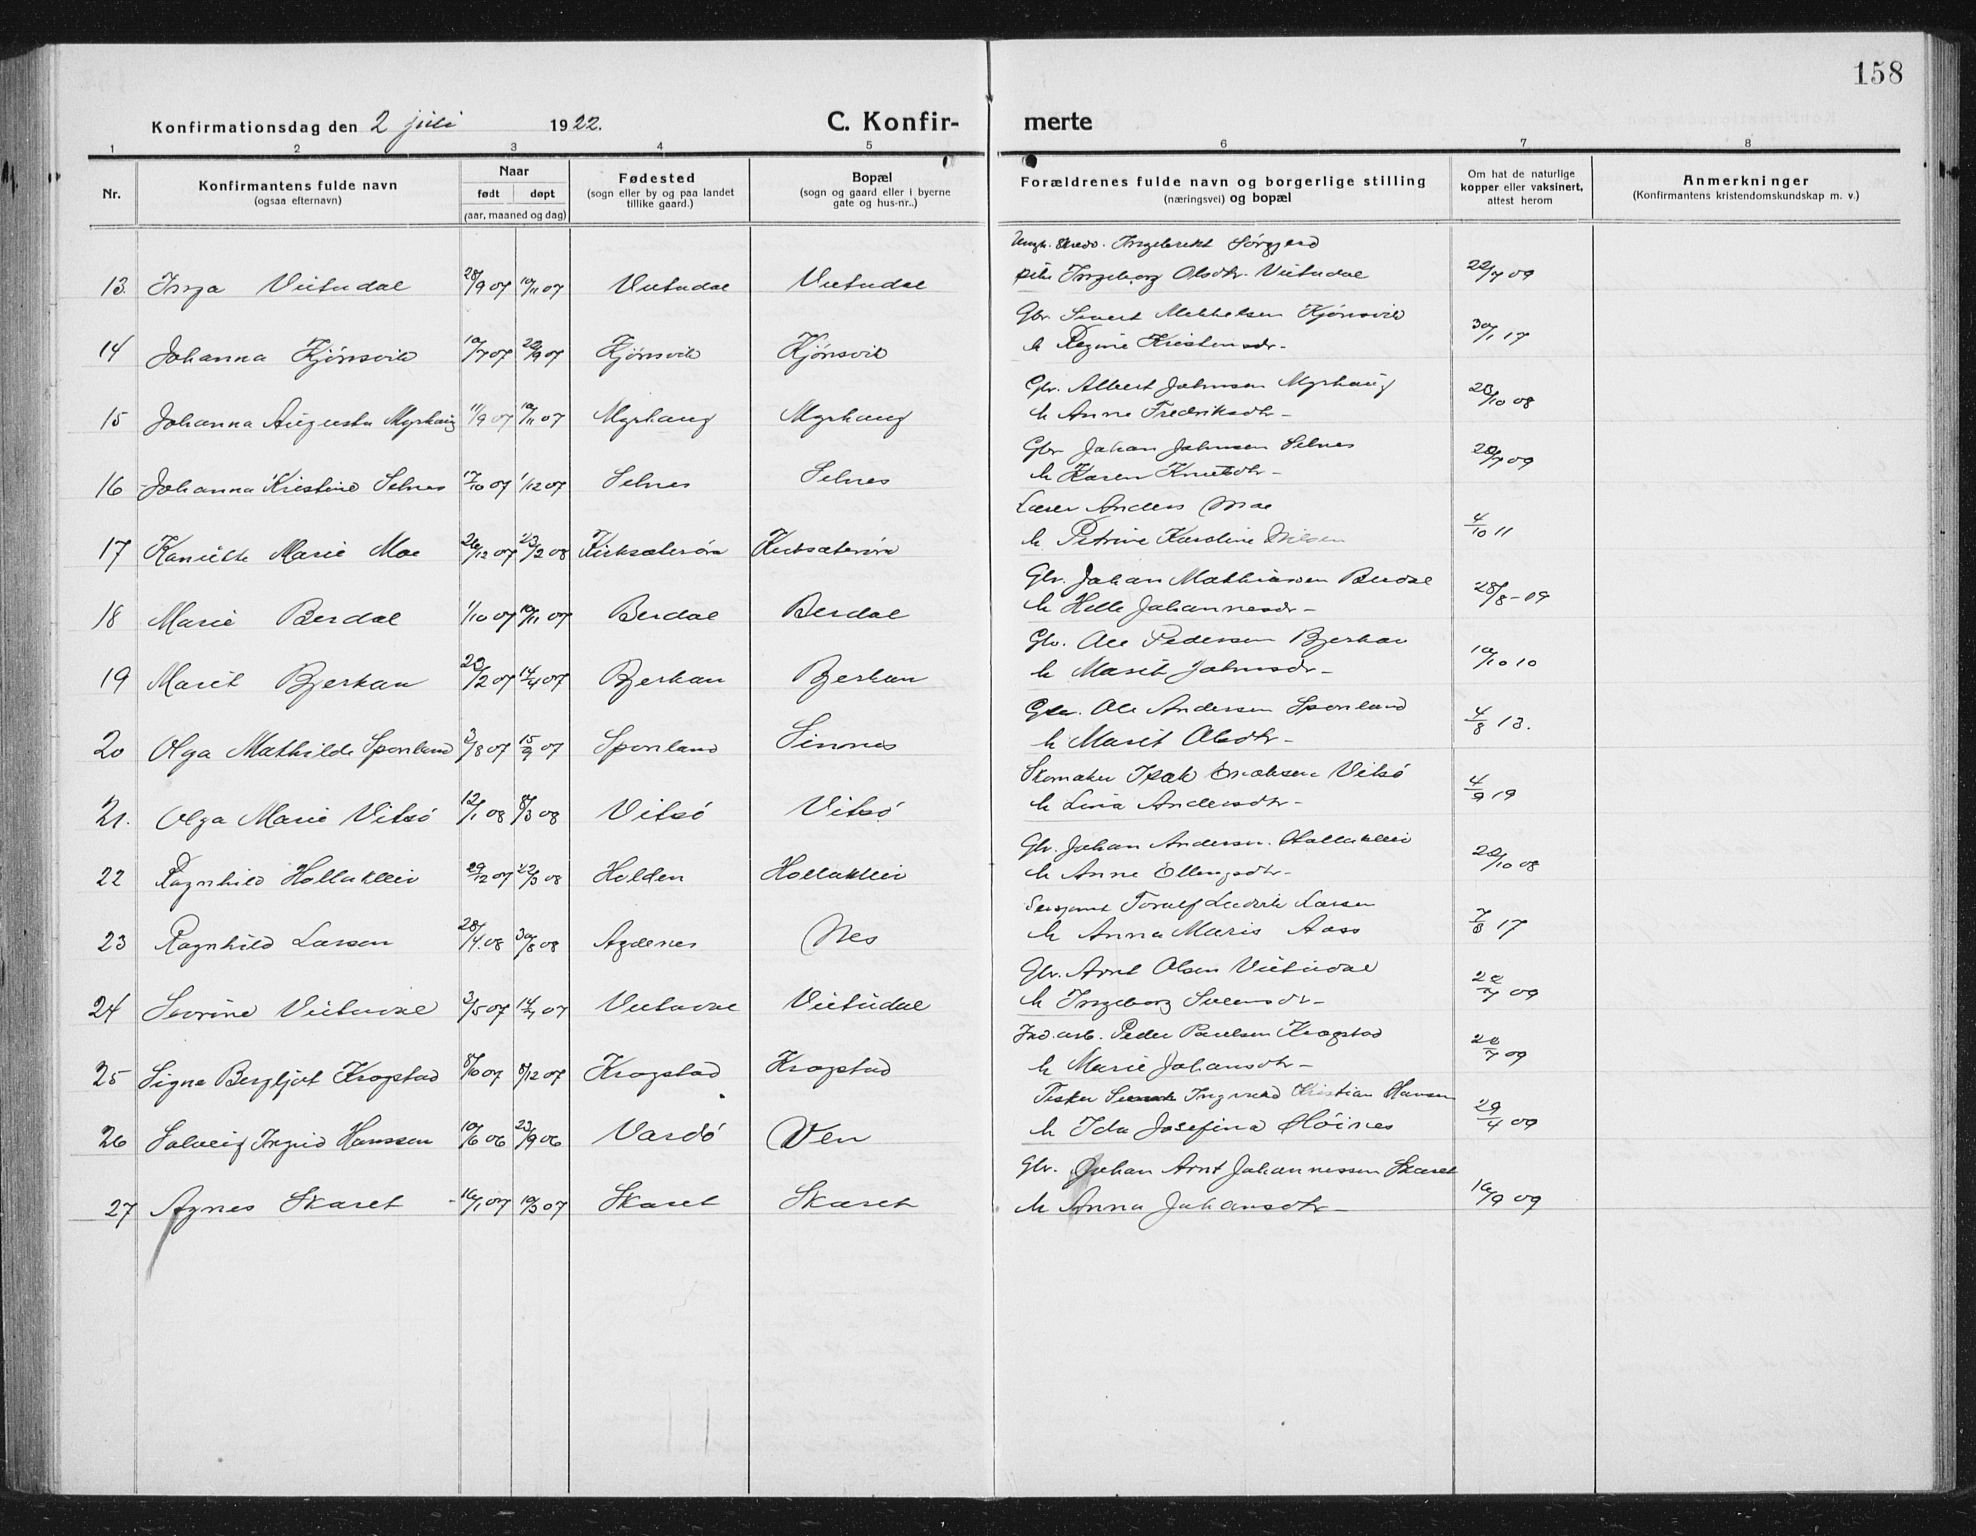 158
Konfirmationsdag den 2 juli 1922. C. Konfir- merte
1 2 3 4 5 6 7 8
Nr. Konfirmantens fulde navn (ogsaa efternavn) Naar født døpt (aar, maaned og dag) Fødested (sogn eller by og paa landet tillike gaard.) Bopæl (sogn og gaard eller i byerne gate og hus-nr..) Forældrenes fulde navn og borgerlige stilling (næringsvei) og bopæl Om hat de naturlige kopper eller vaksinert, attest herom Anmerkninger (Konfirmantens kristendomskundskap m. v.)
Ingebrikt Sørgjerd
13. Inga Vutudal 28/9 07 10/11 07 Vutudal Vutudal Pike Ingeborg Olsdtr. Vutudal 22/7 09
Gbr. Sivert Mikkelsen Kjønsvik
14 Johanna Kjønsvik 10/7 07 22/9 07 Kjønsvik Kjønsvik h Regine Kristensdr. 30/1 17
Gbr. Albert Johnsen Myrhaug
15 Johanna Augusta Myrhaug 11/9 07 10/11 07 Myrhaug Myrhaug h Anne Fredriksdtr - 23/10 08
Gbr Johan Johnsen Selnes
16 Johanna Kristine Selnes 17/10 07 1/12 07 Selnes Selnes h Karen Knutsdtr -
Lærer Anders Moe
17 Marie Moe 26/12 07 23/2 08 Kirksæterøra Kirksæterøra h Petrine Karoline Nilsen 4/10 11
Gbr. Johan Mathiassen Berdal
18 Marie Berdal 1/10 07 10/11 07 Berdal Berdal h Helle Johannesdr - 28/8 - 09
Gbr. Ole Pedersen Bjerkan
19 Marit Bjerkan 20/2 07 14/4 07 Bjerkan Bjerkan h Marit Johnsdr - 10/10 10
Gbr. Ole Andersen Sponland
20 Olga Mathilde Sponland 3/8 07 15/9 07 Sponland Sinnes h Marit Olsdtr - 4/8 13.
Skomaker Isak Vitsö
21. Olga Marie Vitsö 12/1 08 8/3 08 Vitsö Vitsö h Lina Andersdtr - 4/9 19
Gbr. Johan Andersen Hollakleiv
22 Ragnhild Hollakleiv 29/12 07 22/3 08 Holden Hollakleiv h Anne Ellingsdtr -
Sersjant Toralf Ludvik Larsen
23 Ragnhild Larsen 28/4. 08 30/8 08 Agdenes Nes h Anna Maris Aass 7/8 17
Gbr. Arnt Olsen Vutudal
24 Sevrine Vutudal 3/5 07 14/7 07 Vutudal Vutudal h Ingeborg Svensdr - 22/7 09
Ind. arb. Peder Paulsen Krogstad
25 Signe Bergljot Krogstad 8/10 07 8/12 07 Krogstad Krogstad h Marie Johansdtr - 22/7 09
Fisker Ingvald Kristian Hansen
26 Solveig Ingrid Hanssen 10/6 06 23/9 06 Vardö Ven h Ida Josefina Höines 29/4 09
Gbr. Johan Arnt Johannessen Skaret
27 Agnes Skaret 16/1 07 10/3 07 Skaret Skaret h Anna Johansdtr - 10/9 09